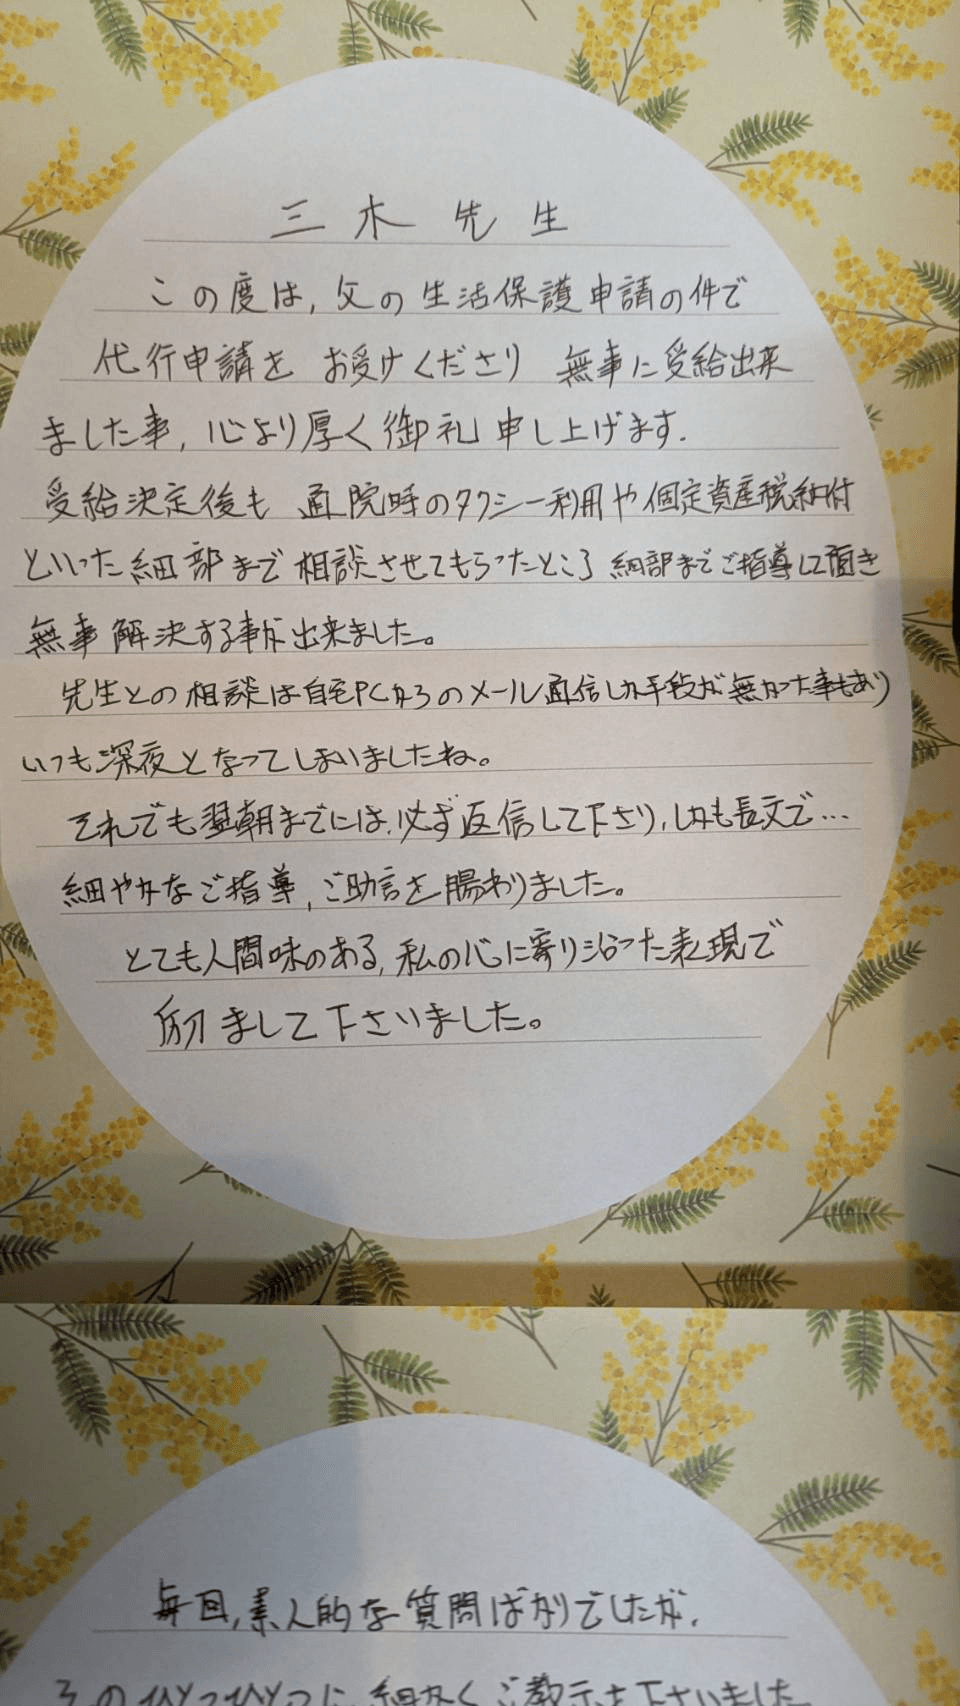 三木先生
この度は,父の生活保護申請の件で
代行申請を お受けくださり 無事に受給出来
ました事,心より厚く御礼申し上げます.
受給決定後も 通院時のタクシー利用や個定資産税納付
といった細部まで相談させてもらったところ細部までご指導して頂き
無事解決する事が出来ました。
先生との相談は自宅PCからのメール通信しか手段が無かった事もあり
いつも深夜となってしまいましたね。
それでも翌朝までには,必ず返信して下さり,しかも長文で…
細やかなご指導,ご助言を賜わりました。
とても人間味のある,私の心に寄り沿った表現で
励まして下さいました。
毎回,素人的な質問ばかりでしたが,
そのひとつひとつに 細かく ご教示を下さいました